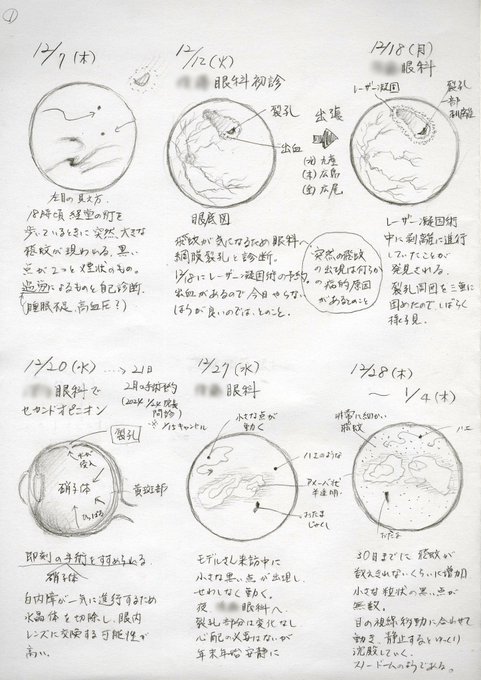 ①
12/7 (木)
左目の見え方.
18時頃 経堂の街を
歩いているときに突然、大きな
飛蚊が現われる. 黒い
点が2つと煙状のもの。
過労によるものと自己診断.
(睡眠不足、高血圧?)
12/12 (火)
眼科初診
裂孔
出血
眼底図
飛蚊が気になるため眼科へ
網膜裂孔と診断。
12/18にレーザー凝固術の予約.
出血があるので今日やらない
ほうが良いのでは、とのこと。
出張
(水) 九産
(木) 広島
(金) 広尾
突然の飛蚊
の出現は何らか
の病的原因
があるとのこと
12/18 (月)
眼科
レーザー凝固
裂孔
一部
剥離
レーザー凝固術
中に剥離に進行
していたことが
発見される.
裂孔周囲を三重に
固めたので、しばらく
様子見.
12/20 (水) …→ 21日
眼科で
セカンドオピニオン
2月の手術予約
(2024 1/24 院長
問診)
※ 1/15キャンセル
裂孔
水が
侵入
硝子体
ひっぱる
黄斑部
即刻の手術をすすめられる
硝子体
白内障が一気に進行するため
水晶体を切除し、眼内
レンズに交換する可能性が
高い.
12/27 (水)
眼科
小さな点が
動く
ハエのような
アメーバ状
半透明
おたま
じゃくし
モデルさん来訪中に
小さな黒い点が出現し、
せわしなく動く.
夜、眼科へ.
裂孔部分は変化なし
心配の必要はないが
年末年始安静に
12/28 (木)
〜 1/4 (木)
非常に細かい
飛蚊
ハエ
おたま
30日までに飛蚊が
数えきれないくらいに増加
小さな粒状の黒い点が
無数.
目の視線移動に合わせて
動き、静止するとゆっくり
沈殿していく.
スノードームのようである。